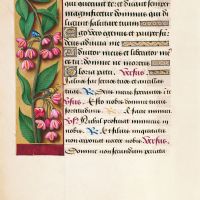 et dicant semper
magnificetur dominus qui di
ligunt salutare tuum
Ego vero egenus et pauper
deus adiuva me
Adiutor meus et liberator me
us es tu domine ne moreris
Gloria patri Versus
Salvos fac servos tuos et ancil
Deus meus sperantes i te
Versus. Esto nobis domine turris
fortitudinis. A facie inimici
Nichil proficiat inimicus in
nobis. Et filius iniquitatis
non apponat nocere nobis Versus
Domine non secundum peccata